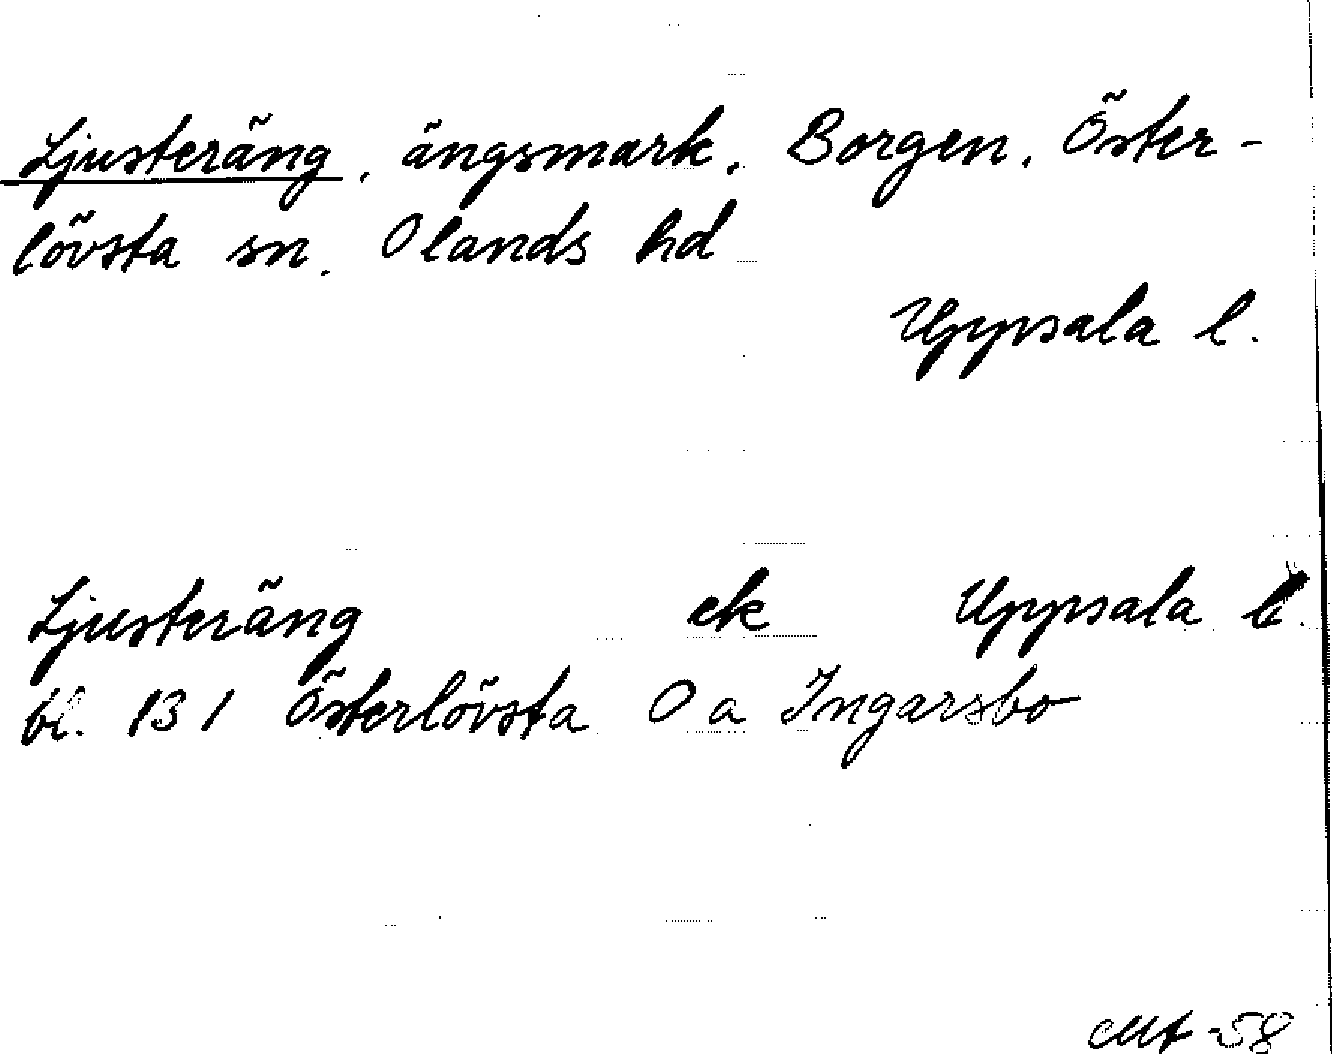 Ljusteräng, ängsmark, Borgen, Öster-
lövsta sn. Olands hd
Uppsala l.
Ljusteräng ek Uppsala l.
bl. 131 Österlövsta O a Ingarsbo
-58